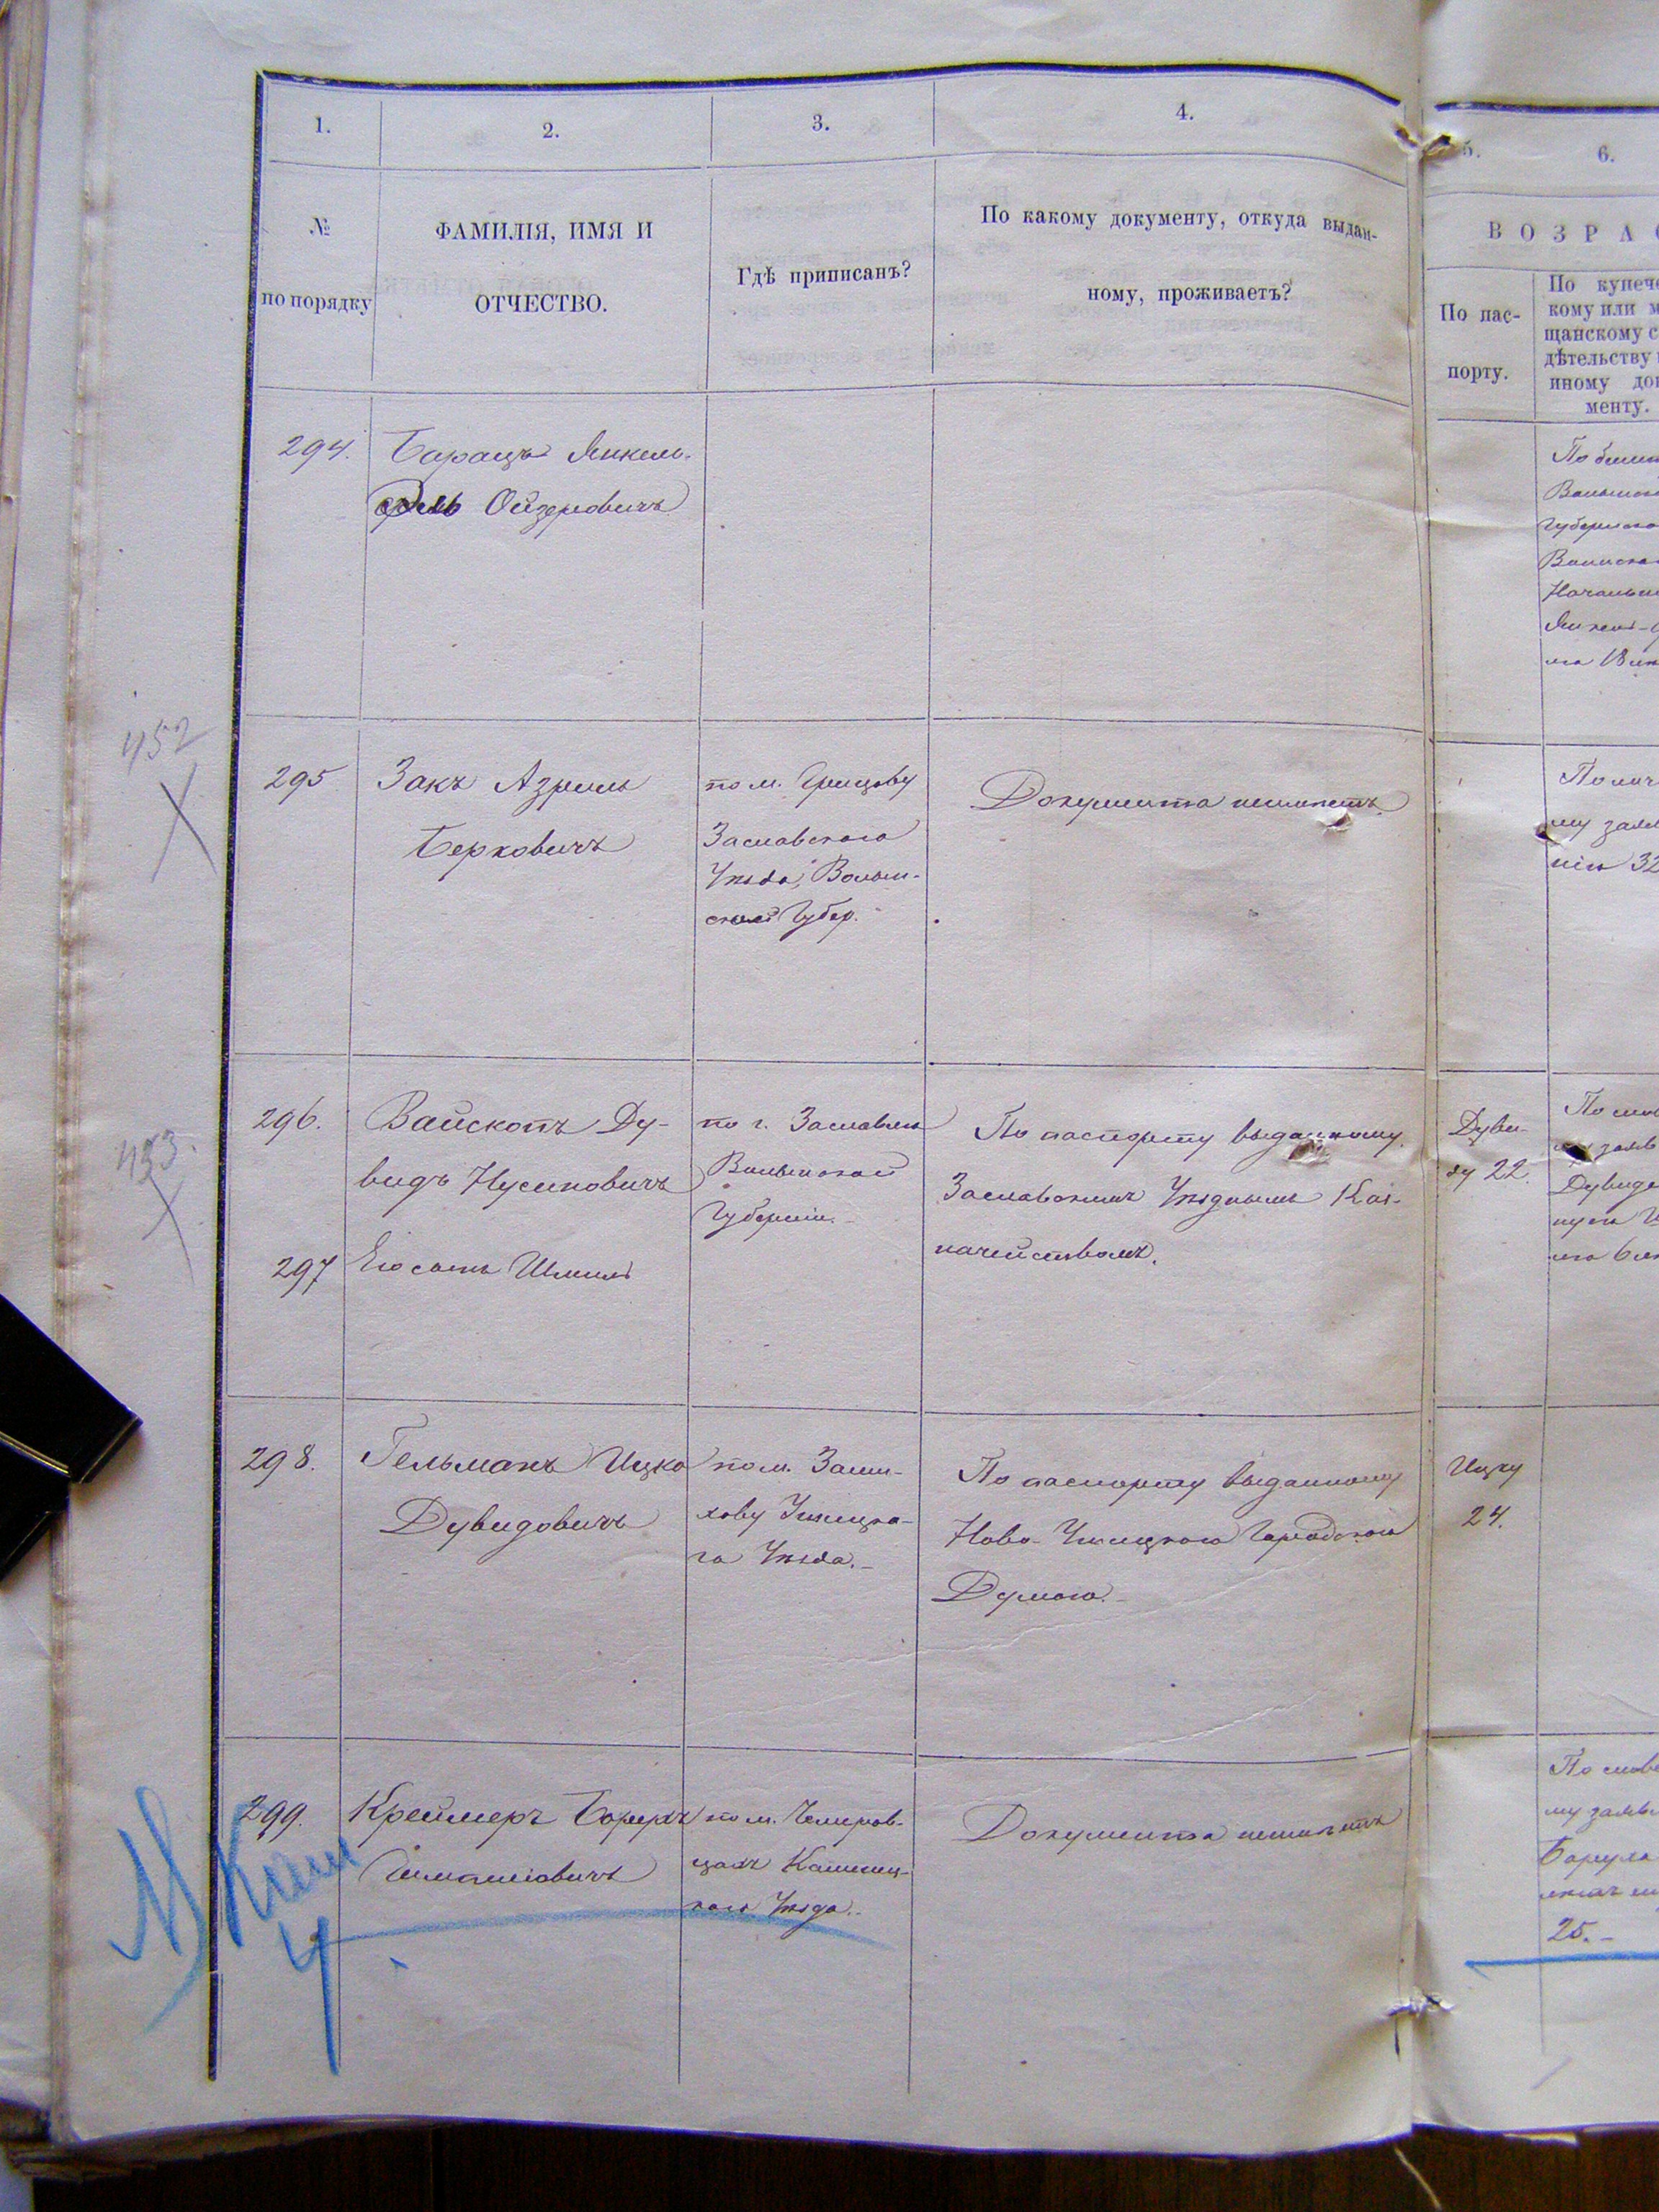 1.
2.
3.
4.
5.
6.
№
по порядку
ФАМИЛІЯ, ИМЯ И
ОТЧЕСТВО.
Гдѣ приписанъ?
По какому документу, откуда выдан-
ному, проживаетъ?
ВОЗРАС
По пас-
порту.
По купече
кому или м
щанскому с
дѣтельству
иному док
менту.
294.
Барацъ Янкель-
Ойзеровичъ
452
295
Закъ Азриль
Берковичъ
по м. Грицеву
Заславскаго
Уѣзда, Волын-
ской Губер.
Документа неимѣетъ
32
453.
296.
Вайскопъ Ду-
видъ Нусиновичъ
297
Его сынъ Шмиль
по г. Заславлю
Волынской
Губерніи.
По паспорту выданному
Заславскимъ Уѣзднымъ Каз-
начействомъ.
Дуви-
ду 22.
298.
Гельманъ Ицко
Дувидовичъ
по м. Зами-
хову Ушицка-
го Уѣзда.
По паспорту выданному
Ново-Ушицкою Городскою
Думою.
Ицку
24.
299.
Креймеръ Борухъ
по м. Чемеров-
цамъ Каменец-
каго Уѣзда.
Документа неимѣетъ
25.
4